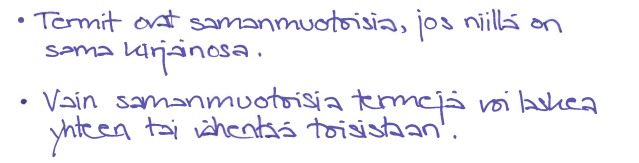 • Termit ovat samanmuotoisia, jos niillä on
sama kirjainosa.
• Vain samanmuotoisia termejä voi laskea
yhteen tai vähentää toisistaan.